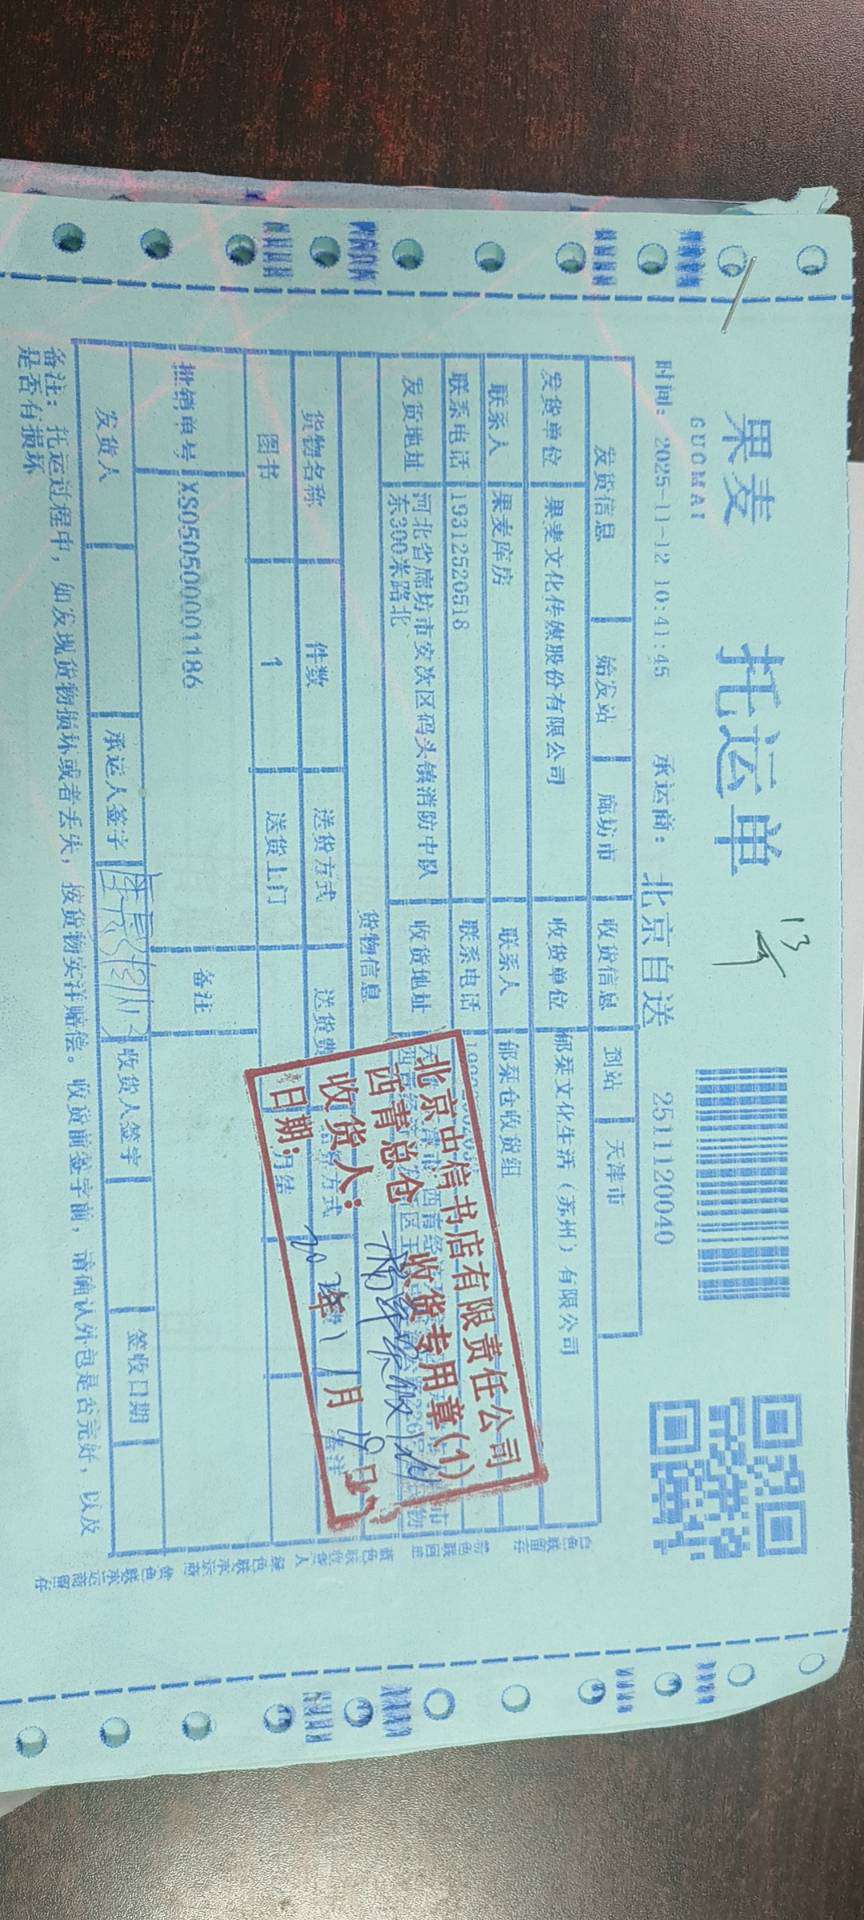 果麦
GUOMAI
托运单
13
2511120040
时间: 2025-11-12 10:41:45 承运商: 北京自送
发货信息 始发站 廊坊市 收货信息 到站 天津市
发货单位 果麦文化传媒股份有限公司 收货单位 郁栞文化生活（苏州）有限公司
联系人 果麦库房 联系人 郁栞仓收货组
联系电话 19312520518 联系电话
发货地址 河北省廊坊市安次区码头镇消防中队
东300米路北
收货地址
货物信息
货物名称 件数 送货方式 送货费
图书 1 送货上门 月结
批销单号 XS050500001186 备注
发货人 承运人签字 收货人签字 签收日期
备注: 托运过程中，如发现货物损坏或者丢失，按货物实洋赔偿。收货前签字前，请确认外包是否完好，以及
是否有损坏
北京中信书店有限责任公司
西青总仓 收货专用章(1)
收货人:
日期: 年11月19日
白色联留存
黄色联承运商留存